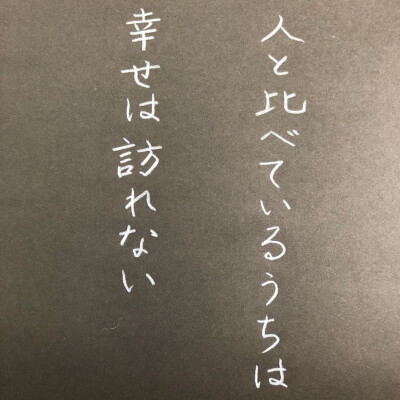 人と比べているうちは
幸せは訪れない